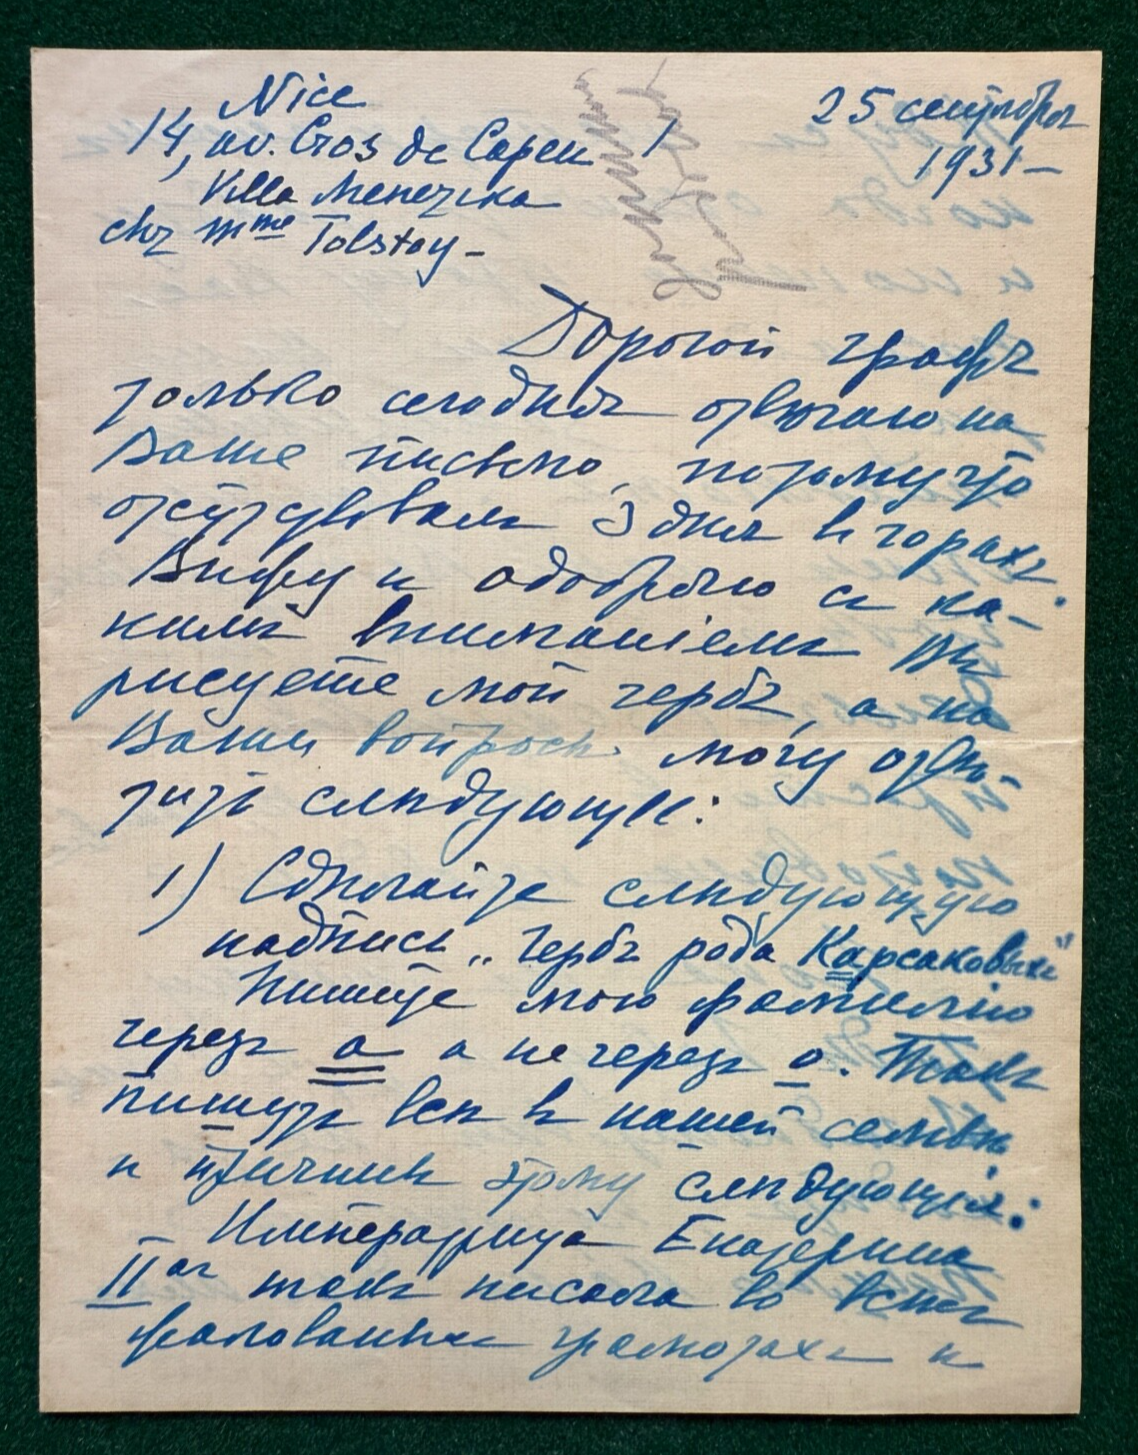 Nice
14, av. Cros de Capeu
Villa
chez Mme Tolstoy –
25 сентября
1931 –
Дорогой графъ
только сегодня отвѣчаю на
Ваше письмо, потому что
отсутствовалъ 3 дня въ горахъ.
Вижу и одобряю съ ка-
кимъ вниманіемъ Вы
рисуете мой гербъ, а на
Ваши вопросы могу отвѣ-
тить слѣдующее:
1) Сдѣлайте слѣдующую
надпись „Гербъ рода Карсаковыхъ"
Пишите мою фамилію
черезъ а а не черезъ о. Такъ
пишутъ всѣ въ нашей семьѣ
и причины этому слѣдующія:
Императрица Екатерина
IIая такъ писала во всѣхъ
жалованныхъ грамотахъ и